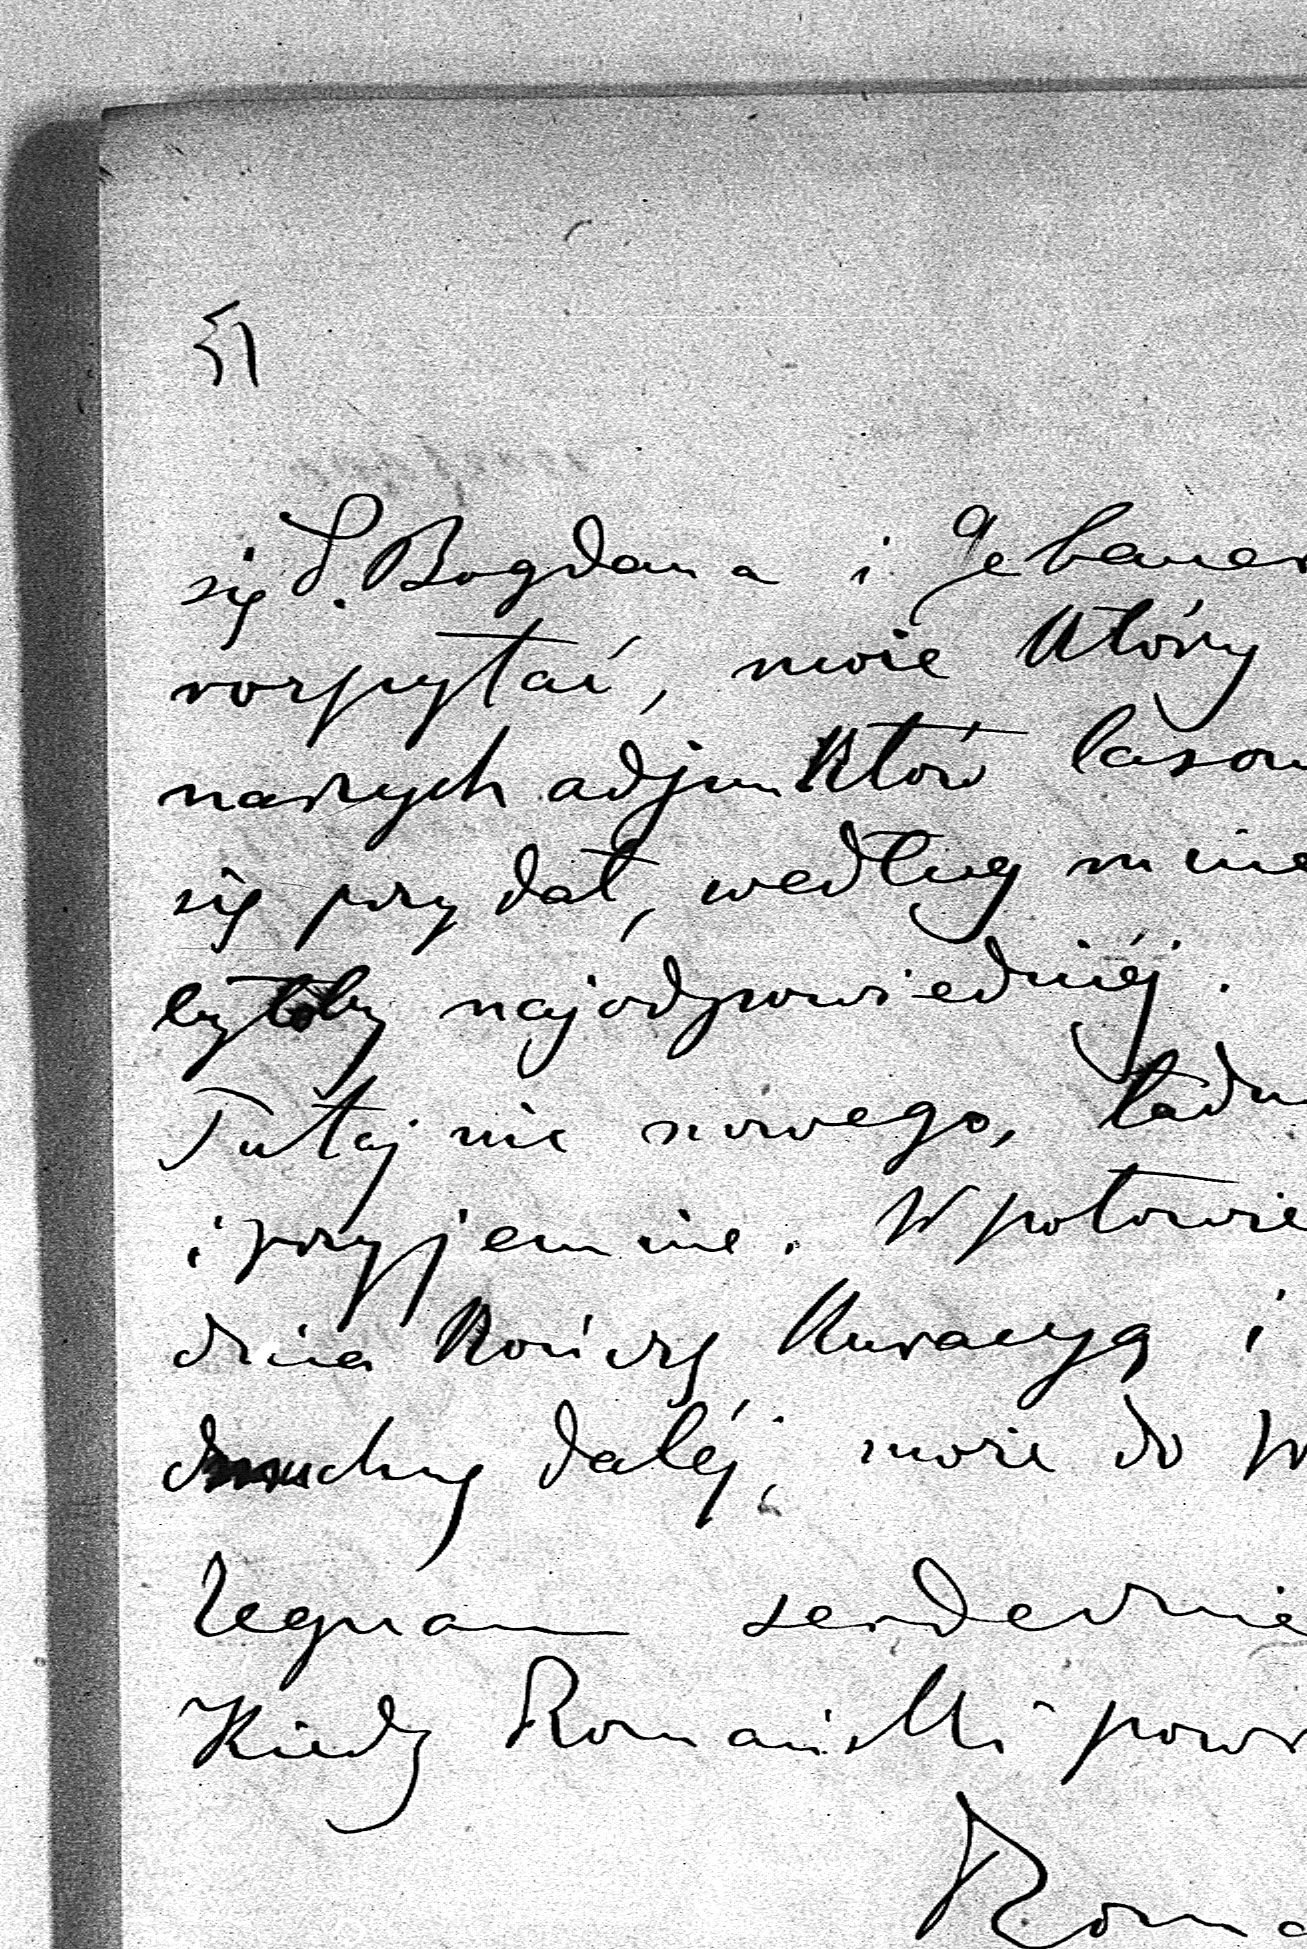 51
się P. Bogdana i Gebauer
rozpytać, może który
naszych adjunktów lasow
się przydał, według mnie
byłoby najodpowiedniéj.
Tutaj nic nowego, ładn
i przyjemnie. W połowie
dnia kończę kuracyą i
dmuchnę daléj, może do W
Żegnam serdecznie
Kiedy Romański powr
Roma